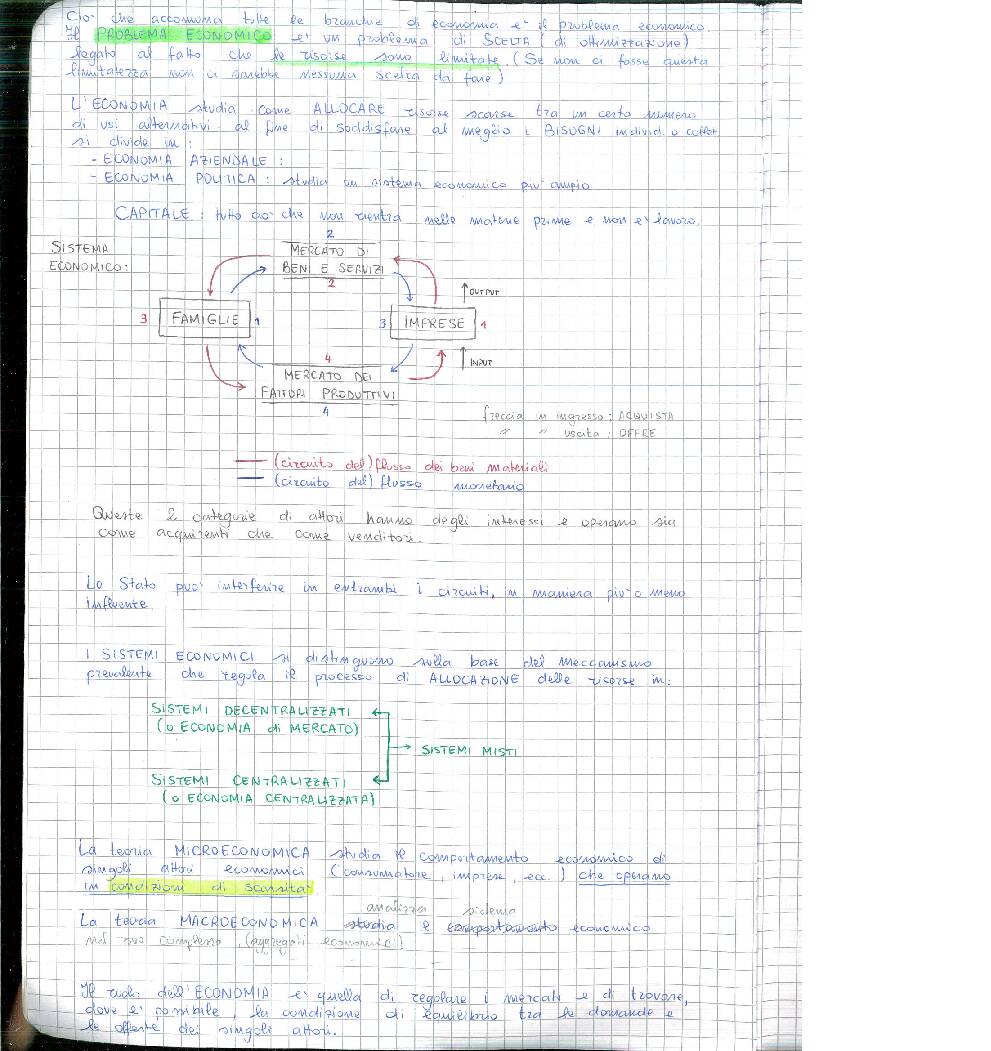 Ciò che accomuna tutte le branchie di economia e' il problema economico.
Il PROBLEMA ECONOMICO e' un problema di SCELTA (di ottimizzazione)
legato al fatto che le risorse sono limitate. (Se non ci fosse questa
limitatezza non ci sarebbe nessuna scelta da fare)
L'ECONOMIA studia come ALLOCARE risorse scarse tra un certo numero
di usi alternativi al fine di soddisfare al meglio i BISOGNI individ. o collet
si divide in:
- ECONOMIA AZIENDALE :
- ECONOMIA POLITICA : studia un sistema economico piu' ampio
CAPITALE : tutto cio' che non rientra nelle materie prime e non e' lavoro.
SISTEMA
ECONOMICO:
2
MERCATO DI
BENI E SERVIZI
2
↑ OUTPUT
3 FAMIGLIE 1
3 IMPRESE 1
↑ INPUT
4
MERCATO DEI
FATTORI PRODUTTIVI
4
freccia in ingresso : ACQUISTA
" " uscita : OFFRE
(circuito del) flusso dei beni materiali
(circuito del) flusso monetario
Queste 2 categorie di attori hanno degli interessi e operano sia
come acquirenti che come venditori.
Lo Stato puo' interferire in entrambi i circuiti, in maniera piu' o meno
influente.
I SISTEMI ECONOMICI si distinguono sulla base del meccanismo
prevalente che regola il processo di ALLOCAZIONE delle risorse in:
SISTEMI DECENTRALIZZATI
(o ECONOMIA di MERCATO)
SISTEMI MISTI
SISTEMI CENTRALIZZATI
(o ECONOMIA CENTRALIZZATA)
La teoria MICROECONOMICA studia il comportamento economico di
singoli attori economici (consumatore, imprese, ecc.) che operano
in condizioni di scarsita'
analizza sistema
La teoria MACROECONOMICA studia il comportamento economico
nel suo complesso (aggregati economici)
Il ruolo dell'ECONOMIA e' quella di regolare i mercati e di trovare,
dove e' possibile, la condizione di equilibrio tra le domande e
le offerte dei singoli attori.